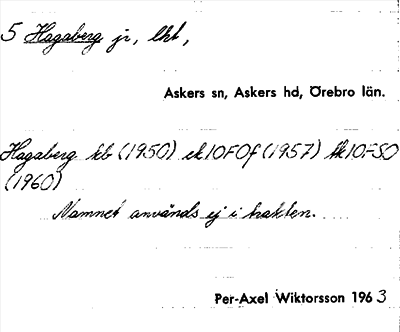 5 Hagaberg jr, lht,
Askers sn, Askers hd, Örebro län.
Hagaberg kb (1950) ek10F0f (1957) fk10F5O
(1960)
Namnet används ej i trakten.
Per-Axel Wiktorsson 1963